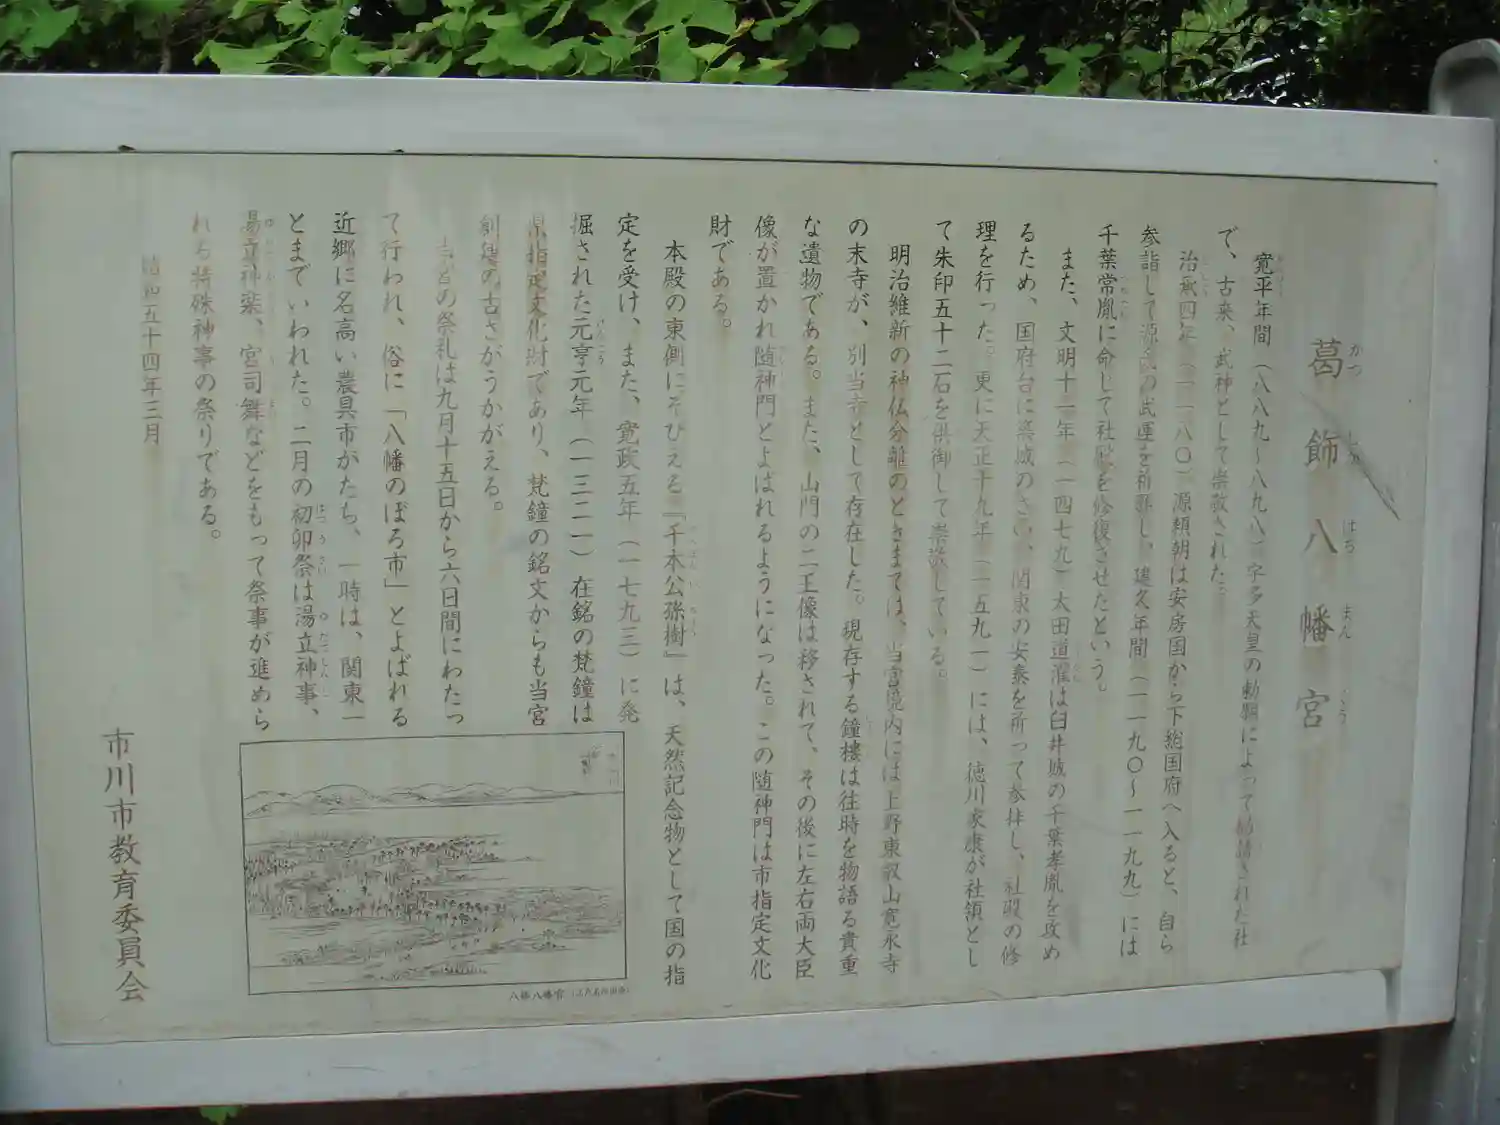 葛飾八幡宮
かつ しか はち まん ぐう
寛平年間（八八九〜八九八）宇多天皇の勅願によって勧請された社
で、古来、武神として崇敬された。
治承四年（一一八〇）源頼朝は安房国から下総国府へ入ると、自ら
参詣して源氏の武運を祈願し、建久年間（一一九〇〜一一九九）には
千葉常胤に命じて社殿を修復させたという。
また、文明十一年（一四七九）太田道灌は臼井城の千葉孝胤を攻め
るため、国府台に築城のさい、関東の安泰を祈って参拝し、社殿の修
理を行った。更に天正十九年（一五九一）には、徳川家康が社領とし
て朱印五十二石を供御して崇敬している。
明治維新の神仏分離のときまでは、当宮境内には上野東叡山寛永寺
の末寺が、別当寺として存在した。現存する鐘楼は往時を物語る貴重
な遺物である。また、山門の二王像は移されて、その後に左右両大臣
像が置かれ随神門とよばれるようになった。この随神門は市指定文化
財である。
本殿の東側にそびえる『千本公孫樹』は、天然記念物として国の指
定を受け、また、寛政五年（一七九三）に発
掘された元亨元年（一三二一）在銘の梵鐘は
県指定文化財であり、梵鐘の銘文からも当宮
創建の古さがうかがえる。
当宮の祭礼は九月十五日から六日間にわたっ
て行われ、俗に「八幡のぼろ市」とよばれる
近郷に名高い農具市がたち、一時は、関東一
とまでいわれた。二月の初卯祭は湯立神事、
湯立神楽、宮司舞などをもって祭事が進めら
れる特殊神事の祭りである。
昭和五十四年三月
市川市教育委員会
八幡八幡宮（江戸名所図会）